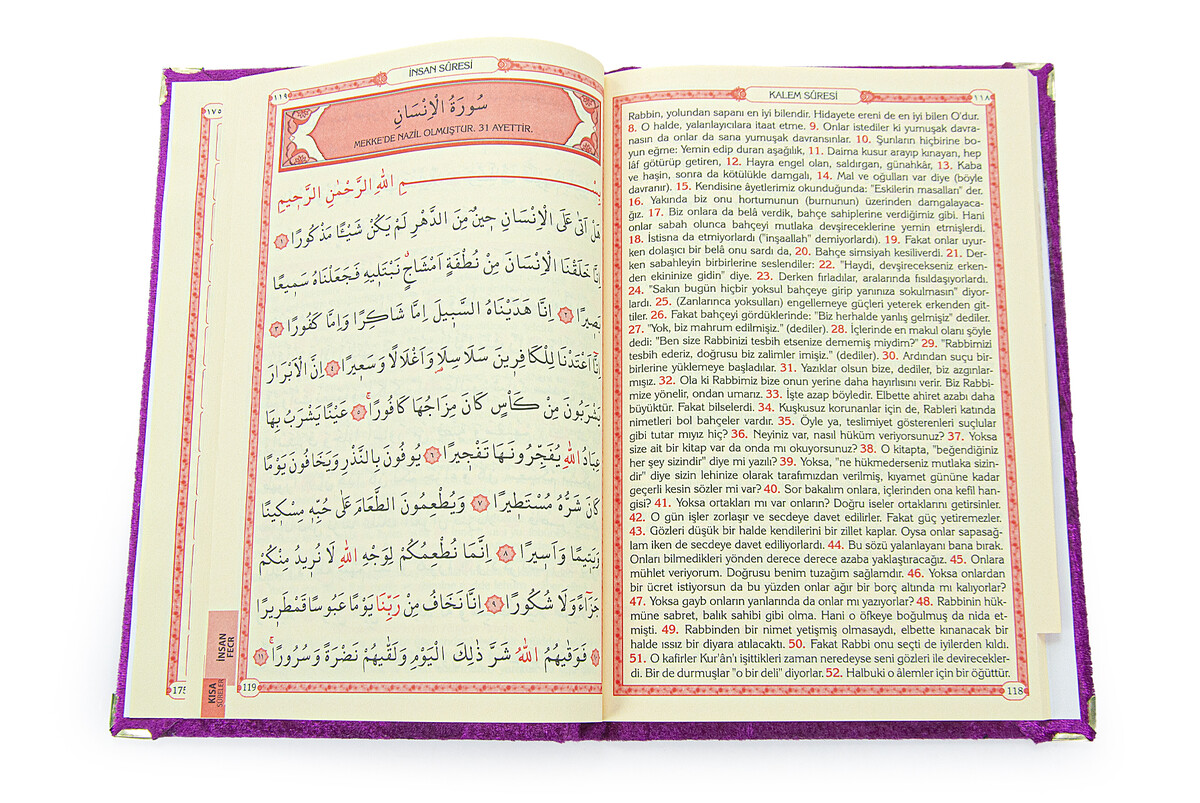 KALEM SÛRESİ
١١٨
Rabbin, yolundan sapanı en iyi bilendir. Hidayete ereni de en iyi bilen O'dur.
8. O halde, yalanlayıcılara itaat etme. 9. Onlar istediler ki yumuşak davra-
nasın da onlar da sana yumuşak davransınlar. 10. Şunların hiçbirine bo-
yun eğme: Yemin edip duran aşağılık, 11. Daima kusur arayıp kınayan, hep
lâf götürüp getiren, 12. Hayra engel olan, saldırgan, günahkâr, 13. Kaba
ve haşin, sonra da kötülükle damgalı, 14. Mal ve oğulları var diye (böyle
davranır). 15. Kendisine âyetlerimiz okunduğunda: "Eskilerin masalları" der.
16. Yakında biz onu hortumunun (burnunun) üzerinden damgalayaca-
ğız. 17. Biz onlara da belâ verdik, bahçe sahiplerine verdiğimiz gibi. Hani
onlar sabah olunca bahçeyi mutlaka devşireceklerine yemin etmişlerdi.
18. İstisna da etmiyorlardı ("inşaallah" demiyorlardı). 19. Fakat onlar uyur-
ken dolaşıcı bir belâ onu sardı da, 20. Bahçe simsiyah kesiliverdi. 21. Der-
ken sabahleyin birbirlerine seslendiler: 22. "Haydi, devşirecekseniz erken-
den ekininize gidin" diye. 23. Derken fırladılar, aralarında fısıldaşıyorlardı.
24. "Sakın bugün hiçbir yoksul bahçeye girip yanınıza sokulmasın" diyor-
lardı. 25. (Zanlarınca yoksulları) engellemeye güçleri yeterek erkenden git-
tiler. 26. Fakat bahçeyi gördüklerinde: "Biz herhalde yanlış gelmişiz" dediler.
27. "Yok, biz mahrum edilmişiz." (dediler). 28. İçlerinde en makul olanı şöyle
dedi: "Ben size Rabbinizi tesbih etsenize dememiş miydim?" 29. "Rabbimizi
tesbih ederiz, doğrusu biz zalimler imişiz." (dediler). 30. Ardından suçu bir-
birlerine yüklemeye başladılar. 31. Yazıklar olsun bize, dediler, biz azgınlar-
mışız. 32. Ola ki Rabbimiz bize onun yerine daha hayırlısını verir. Biz Rabbi-
mize yönelir, ondan umarız. 33. İşte azap böyledir. Elbette ahiret azabı daha
büyüktür. Fakat bilselerdi. 34. Kuşkusuz korunanlar için de, Rableri katında
nimetleri bol bahçeler vardır. 35. Öyle ya, teslimiyet gösterenleri suçlular
gibi tutar mıyız hiç? 36. Neyiniz var, nasıl hüküm veriyorsunuz? 37. Yoksa
size ait bir kitap var da onda mı okuyorsunuz? 38. O kitapta, "beğendiğiniz
her şey sizindir" diye mi yazılı? 39. Yoksa, "ne hükmederseniz mutlaka sizin-
dir" diye sizin lehinize olarak tarafımızdan verilmiş, kıyamet gününe kadar
geçerli kesin sözler mi var? 40. Sor bakalım onlara, içlerinden ona kefil han-
gisi? 41. Yoksa ortakları mı var onların? Doğru iseler ortaklarını getirsinler.
42. O gün işler zorlaşır ve secdeye davet edilirler. Fakat güç yetiremezler.
43. Gözleri düşük bir halde kendilerini bir zillet kaplar. Oysa onlar sapasağ-
lam iken de secdeye davet ediliyorlardı. 44. Bu sözü yalanlayanı bana bırak.
Onları bilmedikleri yönden derece derece azaba yaklaştıracağız. 45. Onlara
mühlet veriyorum. Doğrusu benim tuzağım sağlamdır. 46. Yoksa onlardan
bir ücret istiyorsun da bu yüzden onlar ağır bir borç altında mı kalıyorlar?
47. Yoksa gayb onların yanlarında da onlar mı yazıyorlar? 48. Rabbinin hük-
müne sabret, balık sahibi gibi olma. Hani o öfkeye boğulmuş da nida et-
mişti. 49. Rabbinden bir nimet yetişmiş olmasaydı, elbette kınanacak bir
halde ıssız bir diyara atılacaktı. 50. Fakat Rabbi onu seçti de iyilerden kıldı.
51. O kafirler Kur'ân'ı işittikleri zaman neredeyse seni gözleri ile devirecekler-
di. Bir de durmuşlar "o bir deli" diyorlar. 52. Halbuki o âlemler için bir öğüttür.
118
١١٩
İNSAN SÛRESİ
سُورَةُ الْاِنْسَانِ
MEKKE'DE NAZİL OLMUŞTUR. 31 AYETTİR.
بِسْمِ اللهِ الرَّحْمٰنِ الرَّحِيمِ
هَلْ اَتٰى عَلَى الْاِنْسَانِ حِينٌ مِنَ الدَّهْرِ لَمْ يَكُنْ شَيْـًٔا مَذْكُورًا ١
اِنَّا خَلَقْنَا الْاِنْسَانَ مِنْ نُطْفَةٍ اَمْشَاجٍ نَبْتَلِيهِ فَجَعَلْنَاهُ سَمِيعًا
بَصِيرًا ٢ اِنَّا هَدَيْنَاهُ السَّبِيلَ اِمَّا شَاكِرًا وَاِمَّا كَفُورًا ٣
اِنَّا اَعْتَدْنَا لِلْكَافِرِينَ سَلَاسِلَا۬ وَاَغْلَالًا وَسَعِيرًا ٤ اِنَّ الْاَبْرَارَ
يَشْرَبُونَ مِنْ كَأْسٍ كَانَ مِزَاجُهَا كَافُورًا ٥ عَيْنًا يَشْرَبُ بِهَا
عِبَادُ اللهِ يُفَجِّرُونَهَا تَفْجِيرًا ٦ يُوفُونَ بِالنَّذْرِ وَيَخَافُونَ يَوْمًا
كَانَ شَرُّهُ مُسْتَطِيرًا ٧ وَيُطْعِمُونَ الطَّعَامَ عَلٰى حُبِّهِ مِسْكِينًا
وَيَتِيمًا وَاَسِيرًا ٨ اِنَّمَا نُطْعِمُكُمْ لِوَجْهِ اللهِ لَا نُرِيدُ مِنْكُمْ
جَزَاءً وَلَا شُكُورًا ٩ اِنَّا نَخَافُ مِنْ رَبِّنَا يَوْمًا عَبُوسًا قَمْطَرِيرًا
١٠ فَوَقٰيهُمُ اللهُ شَرَّ ذٰلِكَ الْيَوْمِ وَلَقّٰيهُمْ نَضْرَةً وَسُرُورًا ١١
119
١٧٥
İNSAN
FECR
KISA
SÛRELER
175